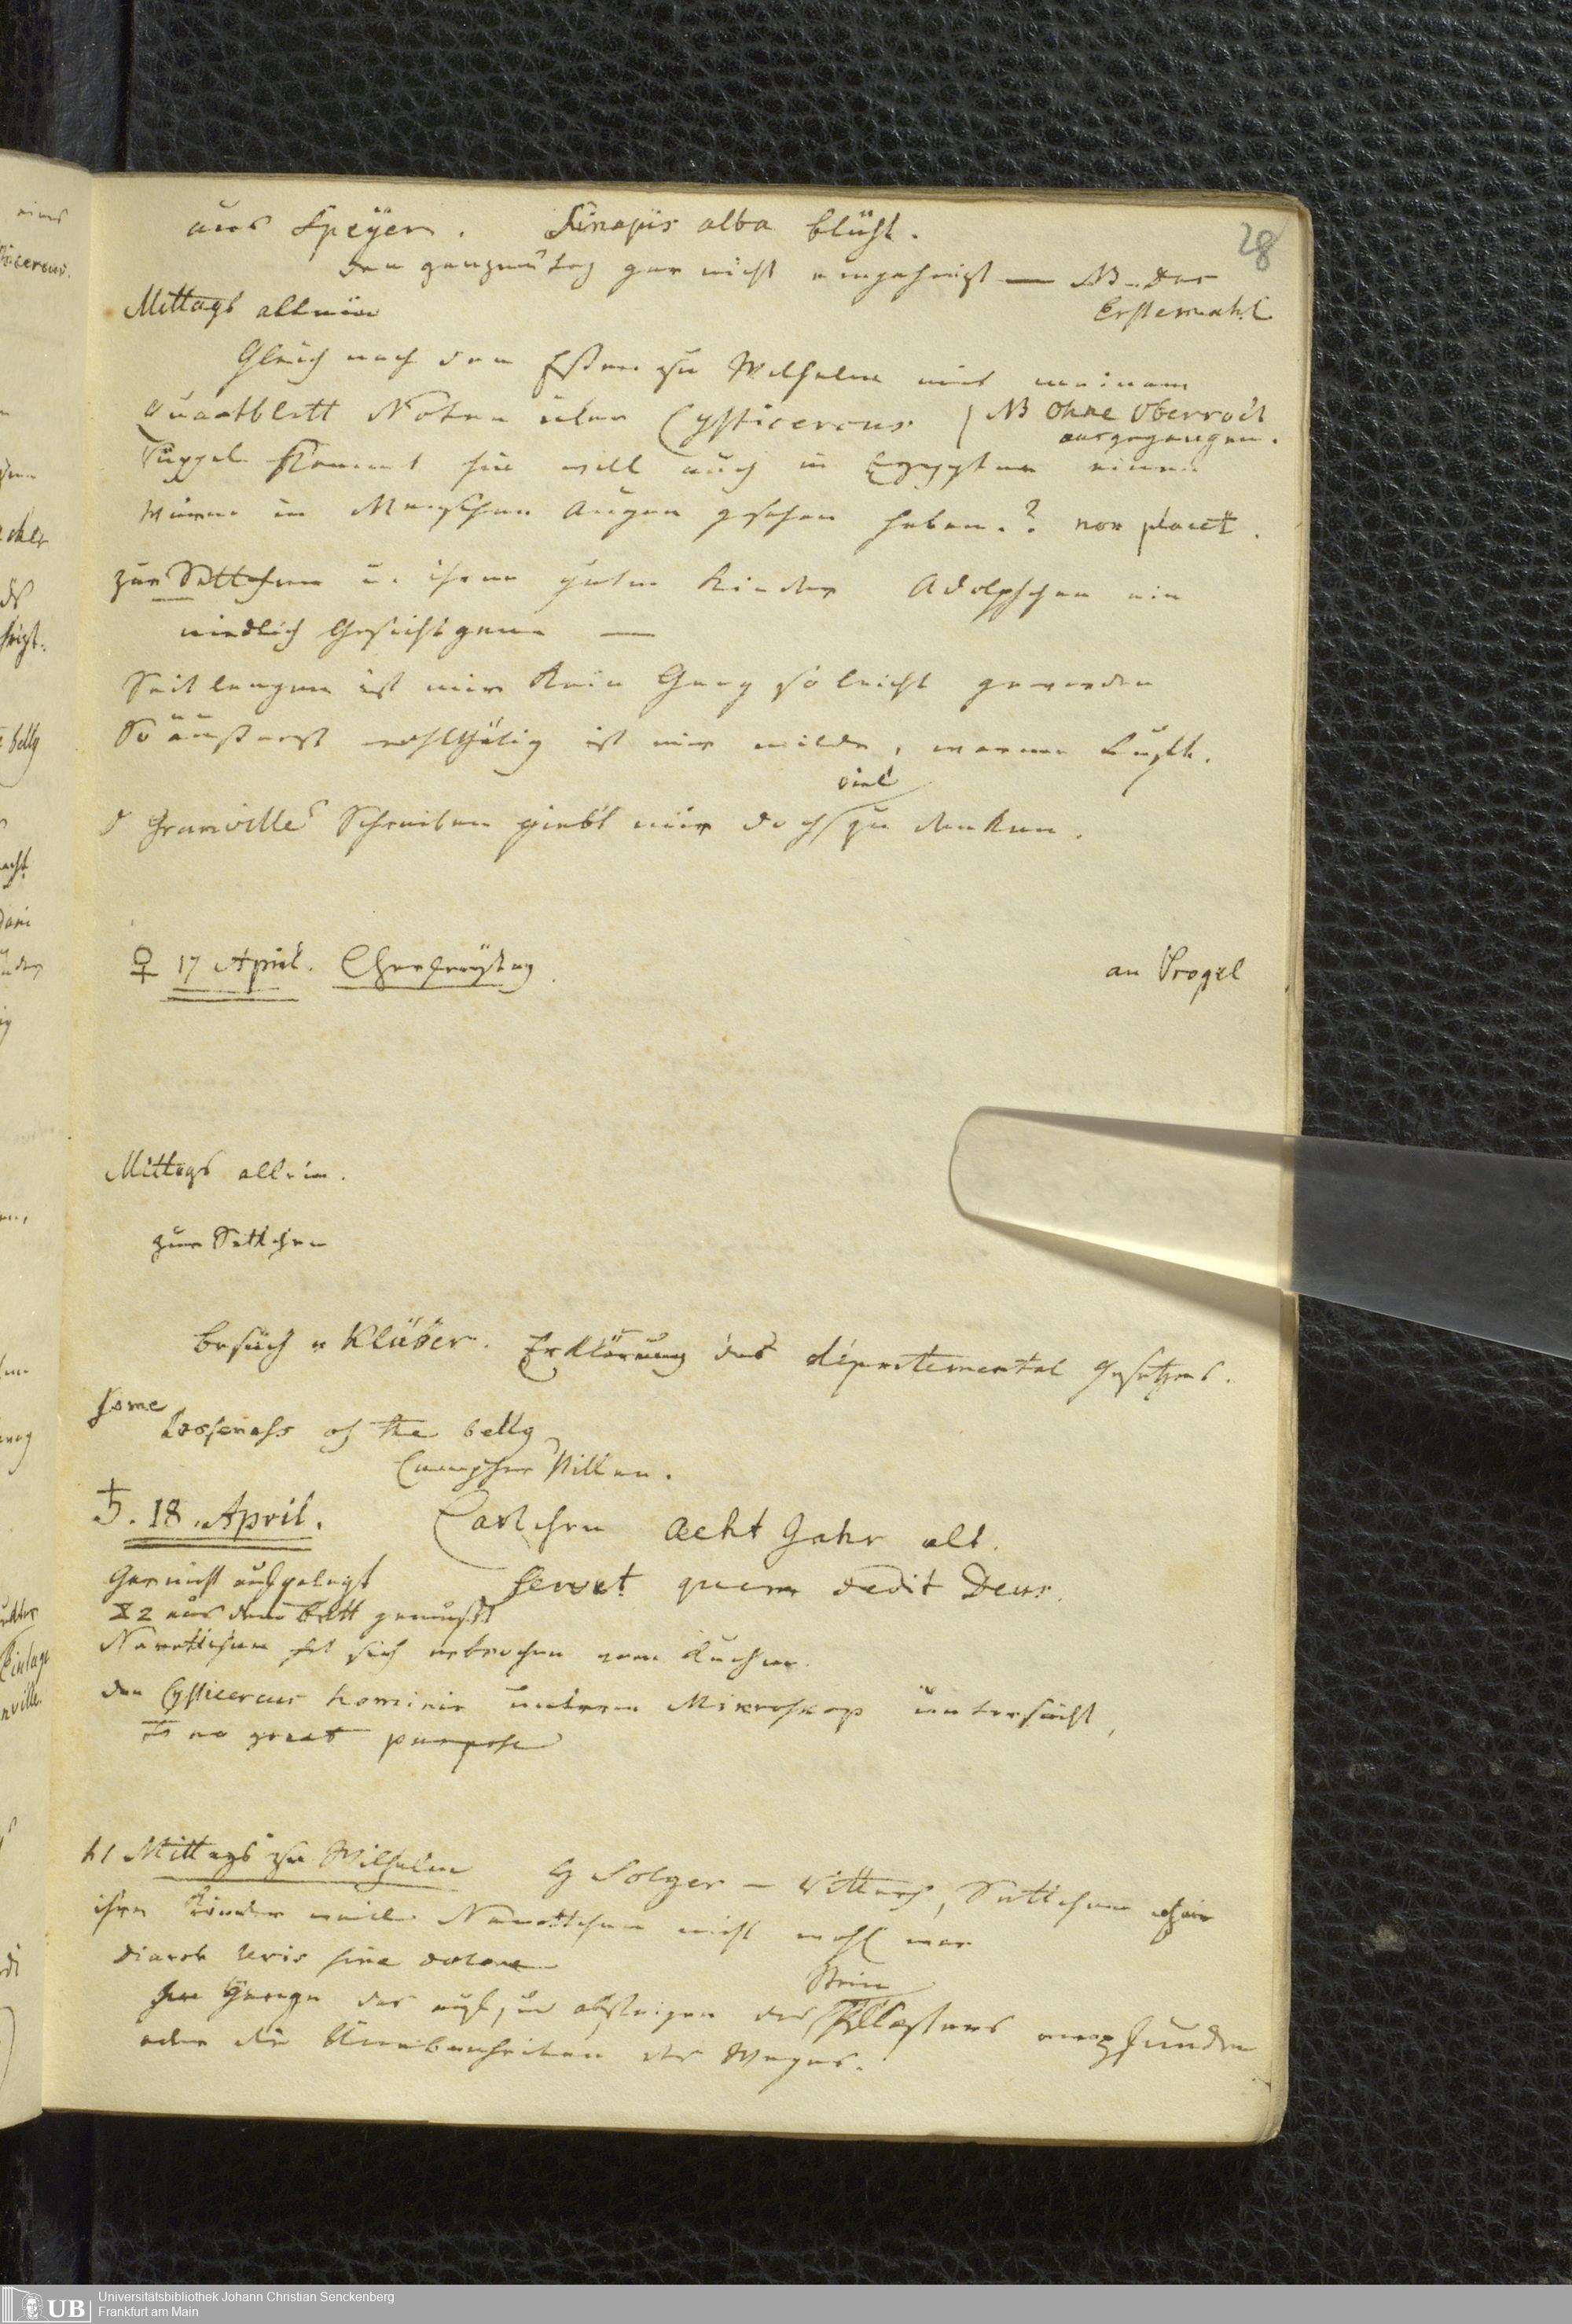 28
aus Speÿer. Sinapis alba blüht.
den ganzen Tag gar nicht eingeheizt — NB. das
Erstemahl
Mittags allein
Gleich nach dem Essen zu Wilhelm mit meinem
Quartblatt Noten über Cysticercus
NB ohne Oberrock
ausgegangen.
kommt hin will auch in Egypten einen
Wurm in Menschen Augen gesehen haben.? non placet.
zur Settchen u. ihren guten Kinder Adolphchen ein
niedlich Gesichtgen —
Seit langem ist mir kein Gang so leicht geworden
So äußerst wohlthätig ist mir milde, warme Luft.
Granvilles Schreiben giebt mir doch viel zu denken.
♀ 17 April. Charfreytag.
an Vogel
Mittags allein.
zur Settchen
Besuch v Klüber. Erklärung des départemental Gesetzes.
Some
looseness of the belly
Campher Pillen.
♄. 18. April. Carlchen acht Jahr alt.
Gar nicht aufgelegt servet quem dedit Deus.
2 aus dem Bett gemußt
Nanettchen hat sich erbrochen vom Kuchen.
den Cysticercus hominis unterm Mikroskop untersucht,
to no great purpose
h1 Mittags zu Wilhelm Solger — Settchen ohne
ihre Kinder weil Nanettchen nicht wohl war
diarrh levis sine dolore
Im Gange das auf, und absteigen des Stein Pflasters empfunden
oder die Unebenheiten des Weges.
Universitätsbibliothek Johann Christian Senckenberg
Frankfurt am Main
UB